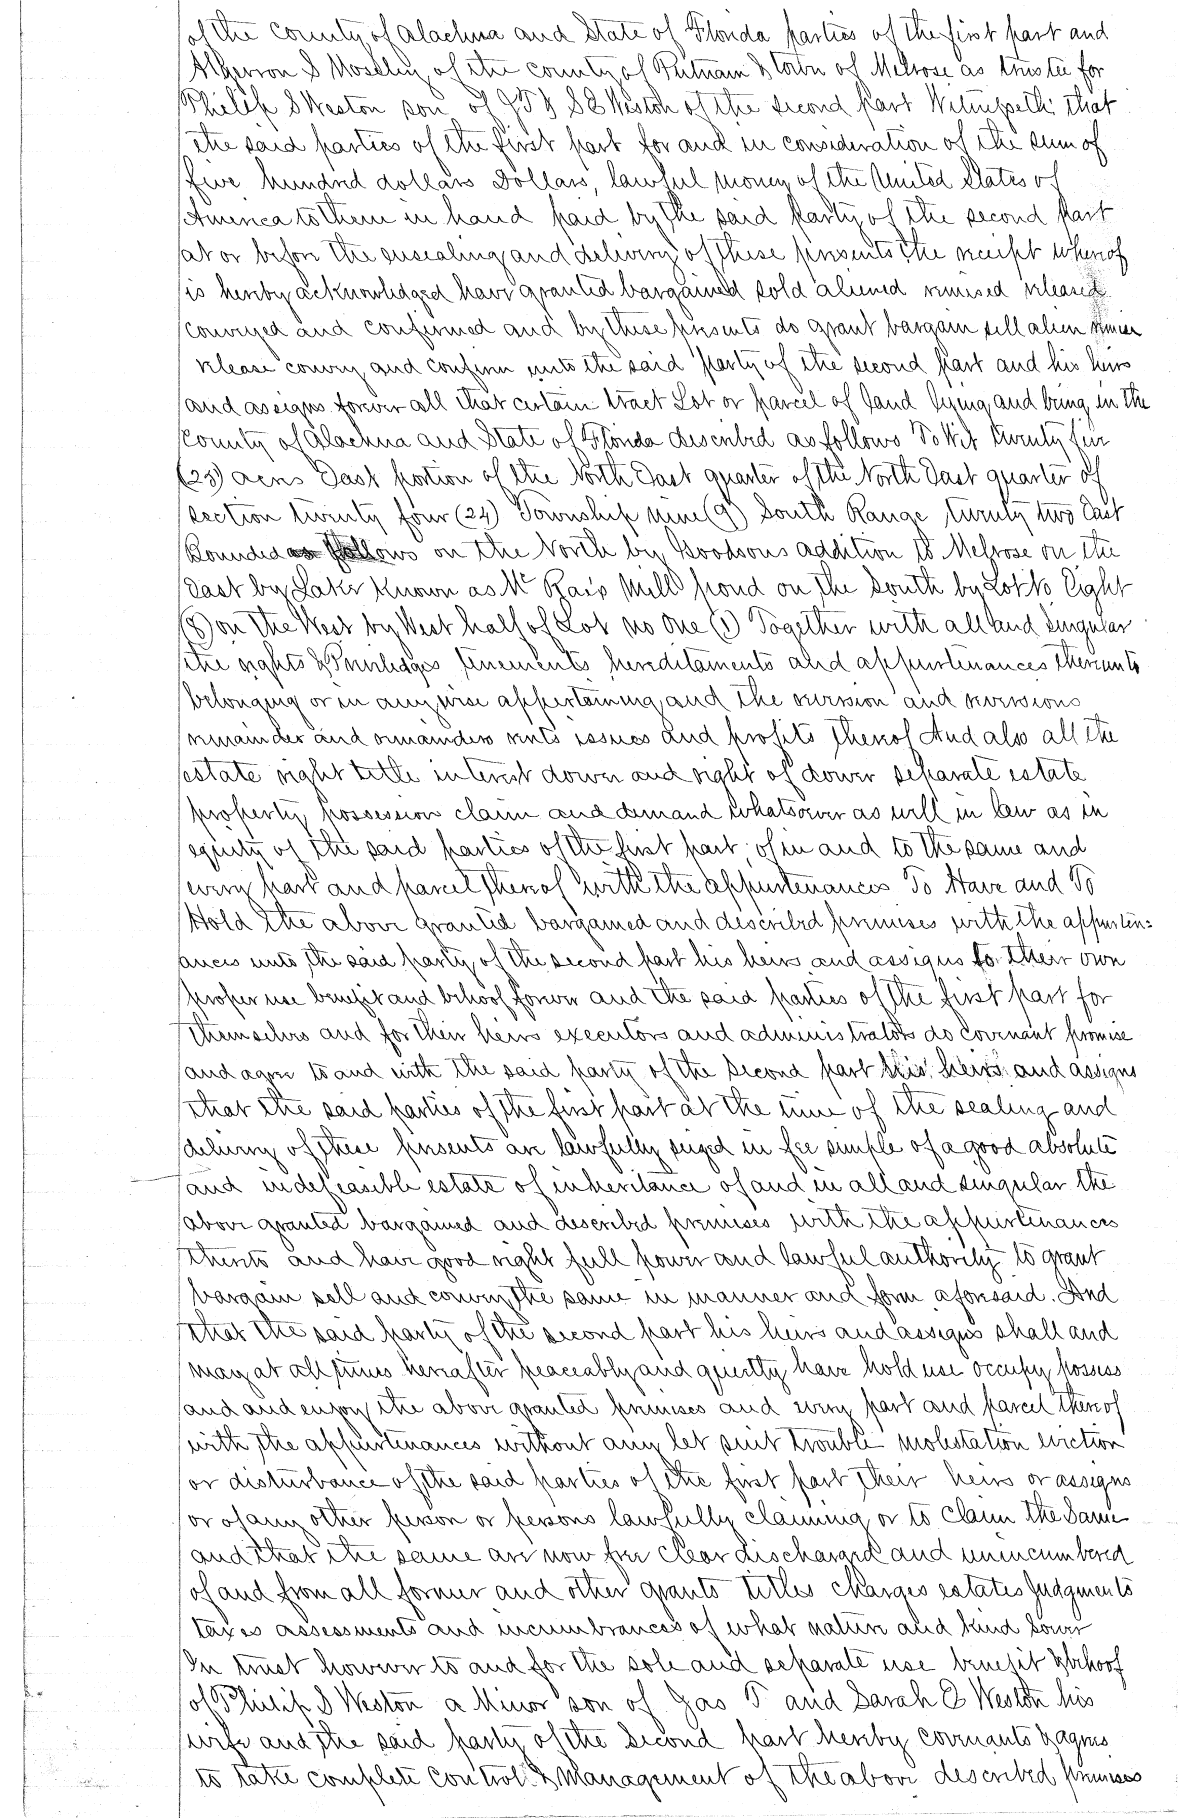 of the county of Alachua and State of Florida parties of the first part and
Algernon S Moseley of the county of Putnam & town of Melrose as trustee for
Philip S Weston son of J T & S E Weston of the second part Witnesseth that
the said parties of the first part for and in consideration of the sum of
five hundred dollars Dollars, lawful money of the United States of
America to them in hand paid by the said party of the second part
at or before the ensealing and delivery of these presents the receipt whereof
is hereby acknowledged have granted bargained sold aliened remised released
conveyed and confirmed and by these presents do grant bargain sell alien remise
release convey and confirm unto the said party of the second part and his heirs
and assigns forever all that certain tract Lot or parcel of land lying and being in the
county of Alachua and State of Florida described as follows To Wit twenty five
(25) acres East portion of the North East quarter of the North East quarter of
section twenty four (24) Township nine (9) South Range twenty two East
Bounded as follows on the North by Goodsons addition to Melrose on the
East by Lake Known as Mc Rae's Mill pond on the South by Lot No Eight
(8) on the West by West half of Lot no One (1) Together with all and singular
the rights & Priviledges tenements hereditaments and appurtenances thereunto
belonging or in any wise appertaining and the reversion and reversions
remainder and remainders rents issues and profits thereof And also all the
estate right title interest dower and right of dower separate estate
property possession claim and demand whatsoever as well in law as in
equity of the said parties of the first part, of in and to the same and
every part and parcel thereof with the appurtenances To Have and To
Hold the above granted bargained and described premises with the appurten=
ances unto the said party of the second part his heirs and assigns to their own
proper use benefit and behoof forever and the said parties of the first part for
themselves and for their heirs executors and administrators do covenant promise
and agree to and with the said party of the second part his heirs and assigns
that the said parties of the first part at the time of the sealing and
delivery of these presents are lawfully seized in fee simple of a good absolute
and indefeasible estate of inheritance of and in all and singular the
above granted bargained and described premises with the appurtenances
thereto and have good right full power and lawful authority to grant
bargain sell and convey the same in manner and form aforesaid. And
that the said party of the second part his heirs and assigns shall and
may at all times hereafter peaceably and quietly have hold use occupy possess
and and enjoy the above granted premises and every part and parcel thereof
with the appurtenances without any let suit trouble molestation eviction
or disturbance of the said parties of the first part their heirs or assigns
or of any other person or persons lawfully claiming or to claim the Same
and that the same are now free clear discharged and unincumbered
of and from all former and other grants titles charges estates Judgments
taxes assessments and incumbrances of what nature and kind soever
In trust however to and for the sole and separate use benefit & behoof
of Philip S Weston a Minor son of Jas T and Sarah E Weston his
wife and the said party of the Second part hereby covenants & agrees
to take complete control & Management of the above described premises